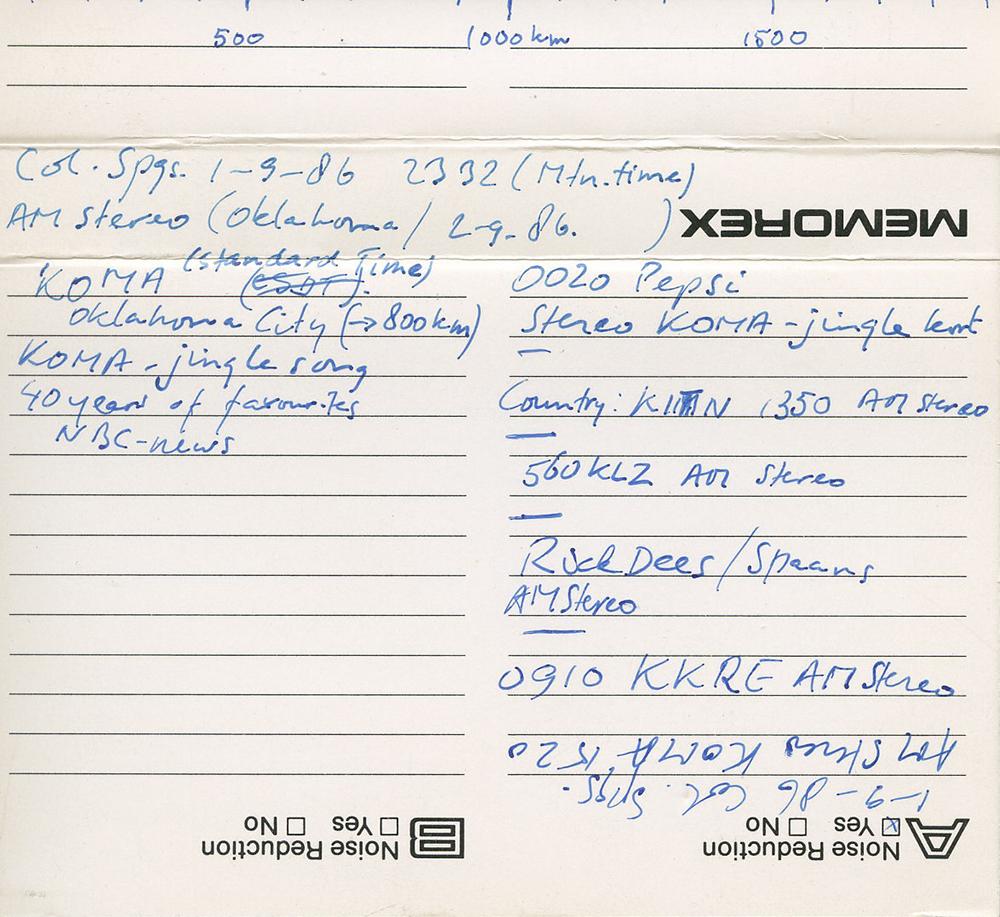 500 1000 km 1500
Col. Spgs. 1-9-86 2332 (Mtn. time)
AM Stereo (Oklahoma / 2-9-86. )
MEMOREX
KOMA (Standard Time)
Oklahoma City (→ 800 km)
KOMA - jingle song
40 years of favourites
NBC-news
0020 Pepsi
Stereo KOMA - jingle kort
—
Country: 1350 AM Stereo
—
560 KLZ AM Stereo
—
Rick Dees / Spaans
AM Stereo
—
0910 KKRE AM Stereo
AM Stereo KOMA 1520
1-9-86 Col. Spgs.
A Noise Reduction
☒ Yes ☐ No
B Noise Reduction
☐ Yes ☐ No